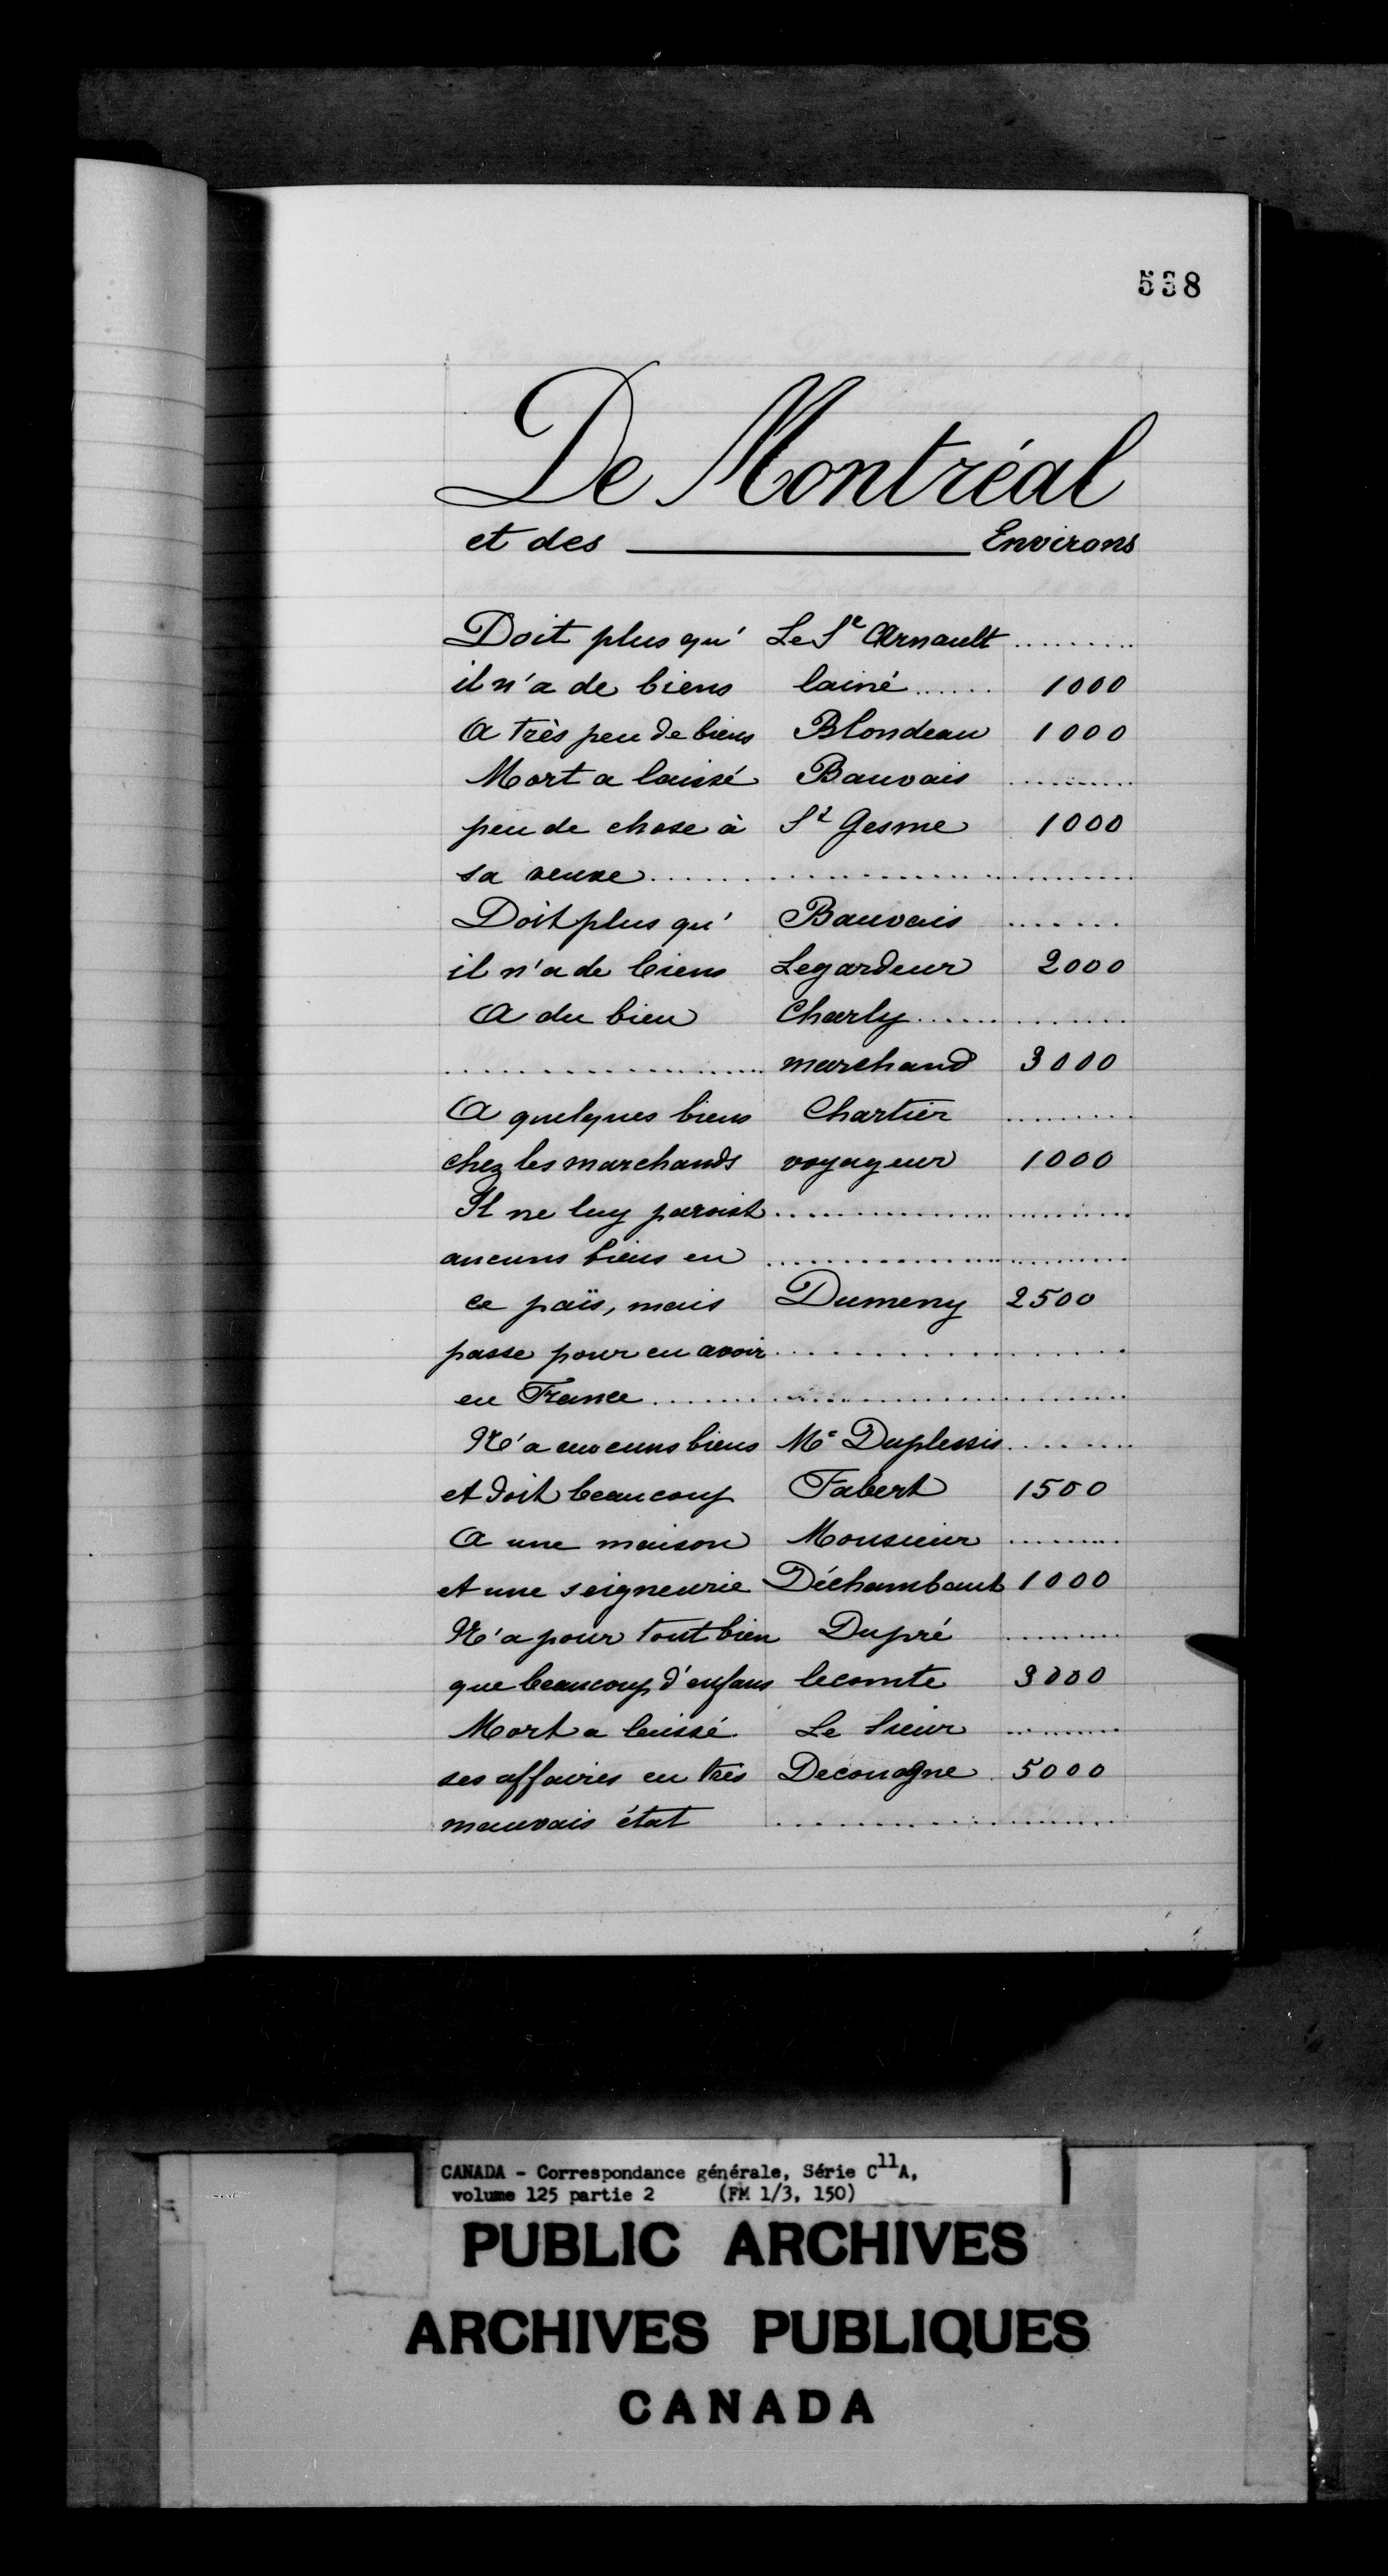 538
De Montréal
et des Environs
Doit plus qu' Le Sr Arnault .........
il n'a de biens lainé ...... 1000
A très peu de biens Blondeau 1000
Mort a laissé Bauvais .........
peu de chose à St Gesme 1000
sa veuve ........................
Doit plus qu' Bauvais .......
il n'a de biens Legardeur 2000
A du bien Charly ............
.................. marchand 3000
A quelques biens Chartier .........
chez les marchands voyageur 1000
Il ne luy paroist ........................
aucuns biens en ........................
ce païs, mais Dumeny 2500
passe pour en avoir ..................
en France ........................
N'a aucuns biens Mr Duplessis ........
et doit beaucoup Fabert 1500
A une maison Monsieur .........
et une seigneurie Déchambaut 1000
N'a pour tout bien Dupré .........
que beaucoup d'enfans lecomte 3000
Mort a laissé Le Sieur .........
ses affaires en très Decouagne 5000
mauvais état ..................
CANADA - Correspondance générale, Série C11A,
volume 125 partie 2 (FM 1/3, 150)
PUBLIC ARCHIVES
ARCHIVES PUBLIQUES
CANADA